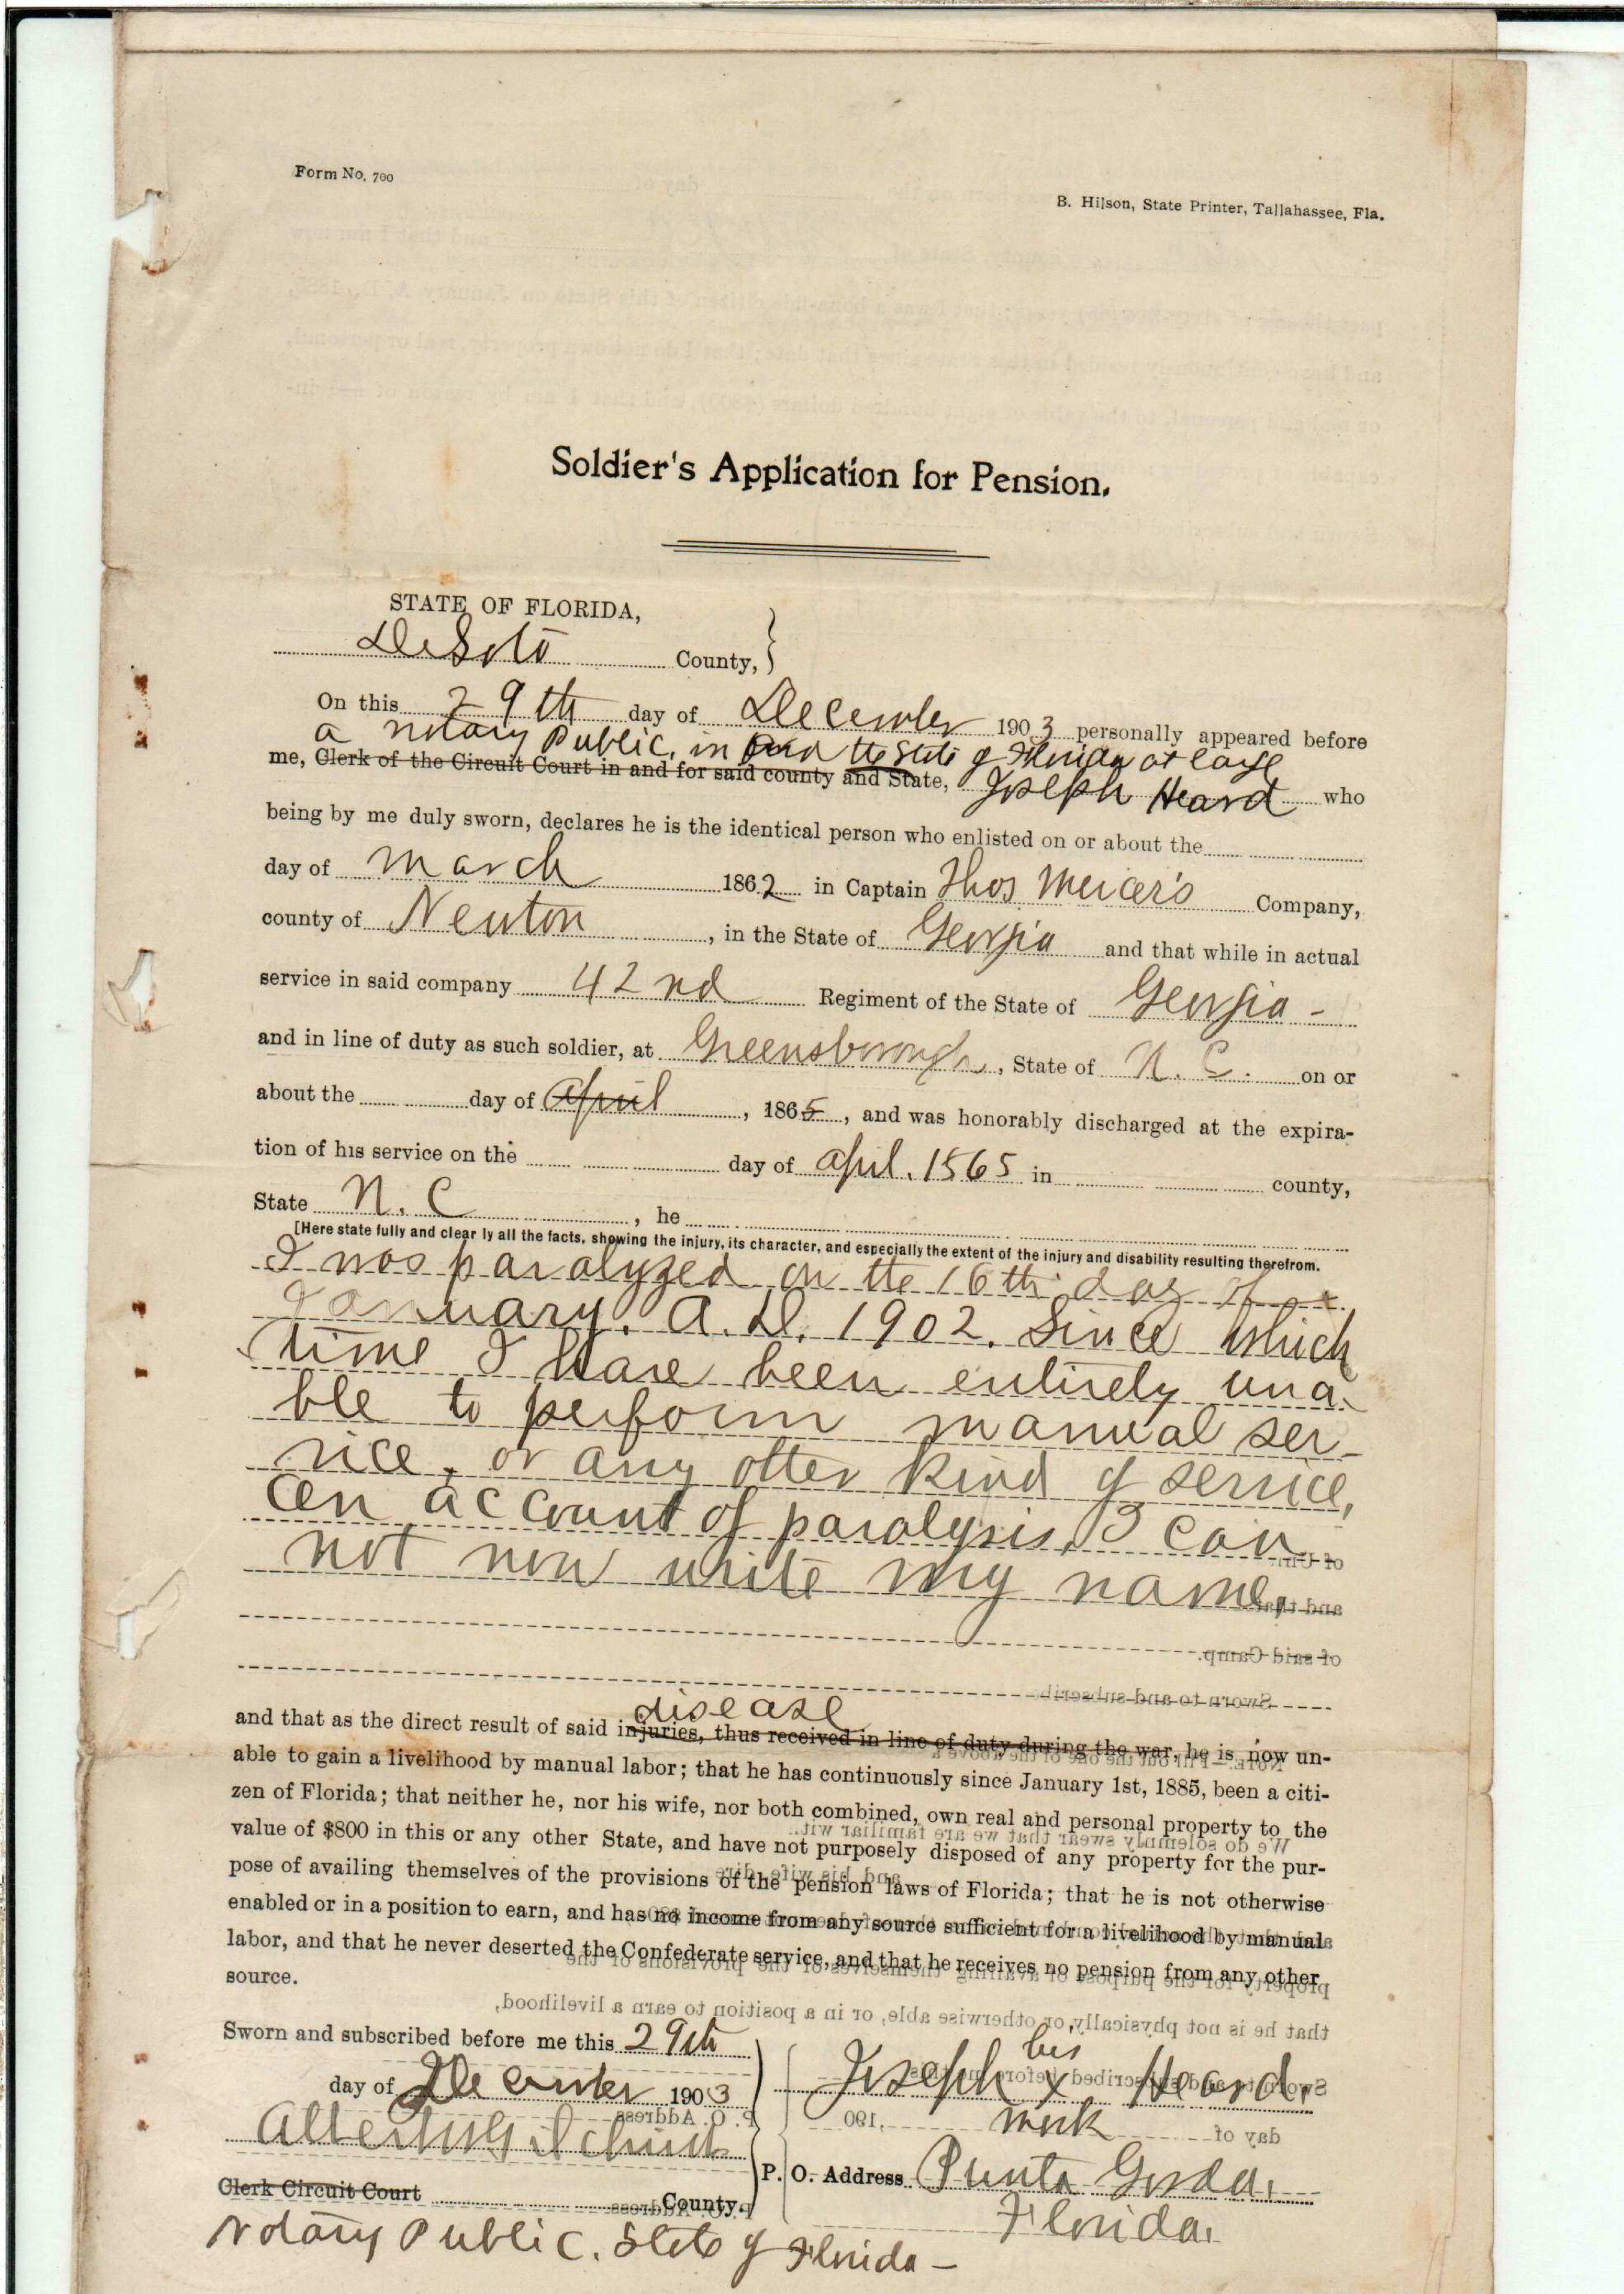 Form No. 700
B. Hilson, State Printer, Tallahassee, Fla.
Soldier's Application for Pension.
STATE OF FLORIDA,
DeSoto County, }
On this 29th day of December 1903 personally appeared before
a notary Public, in and the State of Florida at large
me, Clerk of the Circuit Court in and for said county and State, Joseph Heard who
being by me duly sworn, declares he is the identical person who enlisted on or about the
day of March 1862 in Captain Thos Mercer's Company,
county of Newton, in the State of Georgia and that while in actual
service in said company 42nd Regiment of the State of Georgia -
and in line of duty as such soldier, at Greensborough, State of N. C. on or
about the day of April, 1865, and was honorably discharged at the expira-
tion of his service on the day of April. 1565 in county,
State N. C, he
[Here state fully and clear ly all the facts, showing the injury, its character, and especially the extent of the injury and disability resulting therefrom.
I was paralyzed on the 16th day of
January. A.D. 1902. Since which
time I have been entirely una-
ble to perform manual ser-
vice, or any other kind of service,
on account of paralysis. I can
not now write my name.
disease
and that as the direct result of said injuries, thus received in line of duty during the war, he is now un-
able to gain a livelihood by manual labor; that he has continuously since January 1st, 1885, been a citi-
zen of Florida; that neither he, nor his wife, nor both combined, own real and personal property to the
value of $800 in this or any other State, and have not purposely disposed of any property for the pur-
pose of availing themselves of the provisions of the pension laws of Florida; that he is not otherwise
enabled or in a position to earn, and has no income from any source sufficient for a livelihood by manual
labor, and that he never deserted the Confederate service, and that he receives no pension from any other
source.
Sworn and subscribed before me this 29th
day of December 1903
his
Joseph x Heard,
mark
Clerk Circuit Court County.
P. O. Address Punta Gorda,
Florida.
Notary Public. State of Florida -